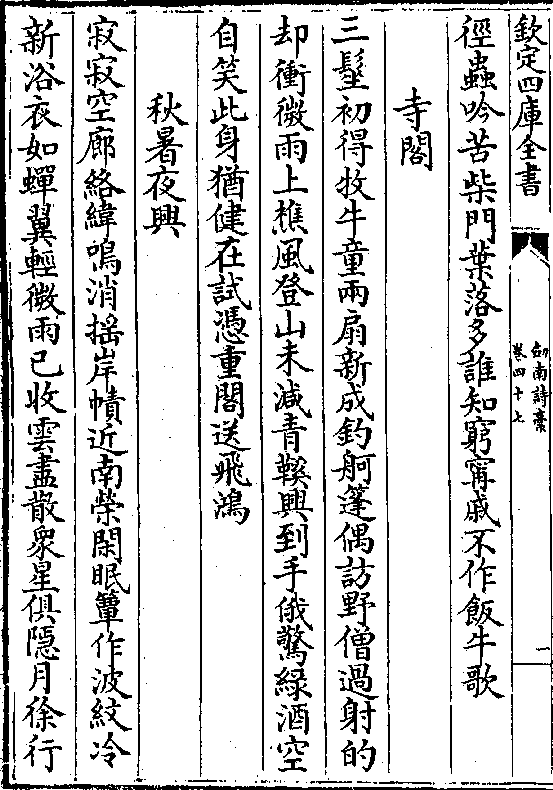 欽定四庫全書
劒南詩藳
卷四十七
一
徑蟲吟苦柴門葉落多誰知窮甯戚不作飯牛歌
寺閣
三髽初得牧牛童兩扇新成釣舸篷偶訪野僧過射的
却衝微雨上樵風登山未減青鞵興到手俄驚綠酒空
自笑此身猶健在試憑重閣送飛鴻
秋暑夜興
寂寂空廊絡緯鳴消揺岸幘近南榮閑眠簟作波紋冷
新浴衣如蟬翼輕微雨已收雲盡散衆星俱隱月徐行